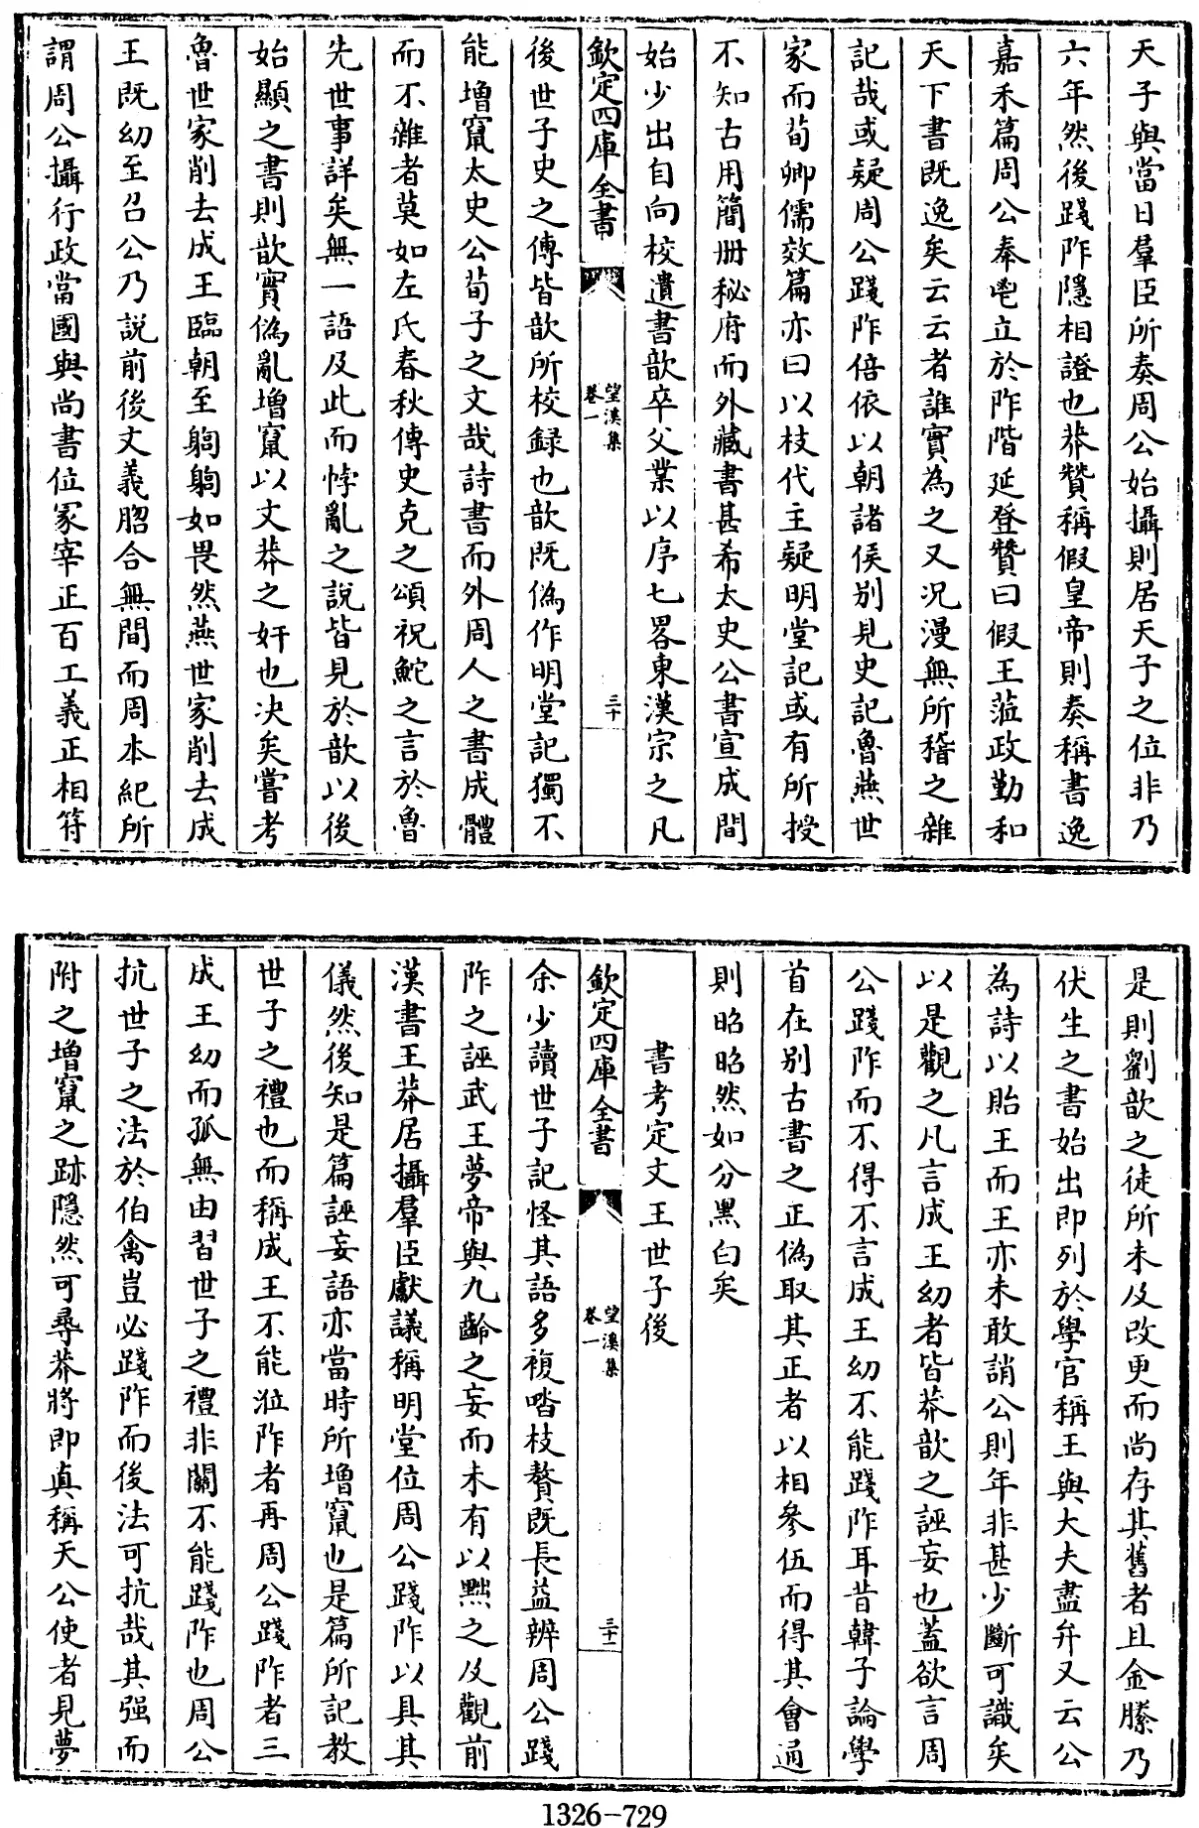 天子與當日羣臣所奏周公始攝則居天子之位非乃
六年然後踐阼隱相證也莽贊稱假皇帝則奏稱書逸
嘉禾篇周公奉鬯立於阼階延登贊曰假王蒞政勤和
天下書既逸矣云云者誰實為之又況漫無所稽之雜
記哉或疑周公踐阼倍依以朝諸侯别見史記魯燕世
家而荀卿儒效篇亦曰以枝代主疑明堂記或有所授
不知古用簡冊秘府而外藏書甚希太史公書宣成間
始少出自向校遺書歆卒父業以序七畧東漢宗之凡
欽定四庫全書
望溪集
卷一
三十
後世子史之傳皆歆所校録也歆既偽作明堂記獨不
能增竄太史公荀子之文哉詩書而外周人之書成體
而不雜者莫如左氏春秋傳史克之頌祝鮀之言於魯
先世事詳矣無一語及此而悖亂之說皆見於歆以後
始顯之書則歆實偽亂增竄以文莽之奸也決矣嘗考
魯世家削去成王臨朝至躬躬如畏然燕世家削去成
王既幼至召公乃說前後文義脗合無間而周本紀所
謂周公攝行政當國與尚書位冢宰正百工義正相符
是則劉歆之徒所未及改更而尚存其舊者且金縢乃
伏生之書始出即列於學官稱王與大夫盡弁又云公
為詩以貽王而王亦未敢誚公則年非甚少斷可識矣
以是觀之凡言成王幼者皆莽歆之誣妄也蓋欲言周
公踐阼而不得不言成王幼不能踐阼耳昔韓子論學
首在别古書之正偽取其正者以相參伍而得其會通
則昭昭然如分黑白矣
書考定文王世子後
欽定四庫全書
望溪集
卷一
三十一
余少讀世子記怪其語多複沓枝贅既長益辨周公踐
阼之誣武王夢帝與九齡之妄而未有以黜之及觀前
漢書王莽居攝羣臣獻議稱明堂位周公踐阼以具其
儀然後知是篇誣妄語亦當時所增竄也是篇所記教
世子之禮也而稱成王不能涖阼者再周公踐阼者三
成王幼而孤無由習世子之禮非關不能踐阼也周公
抗世子之法於伯禽豈必踐阼而後法可抗哉其强而
附之增竄之跡隱然可尋莽將即真稱天公使者見夢
1326-729